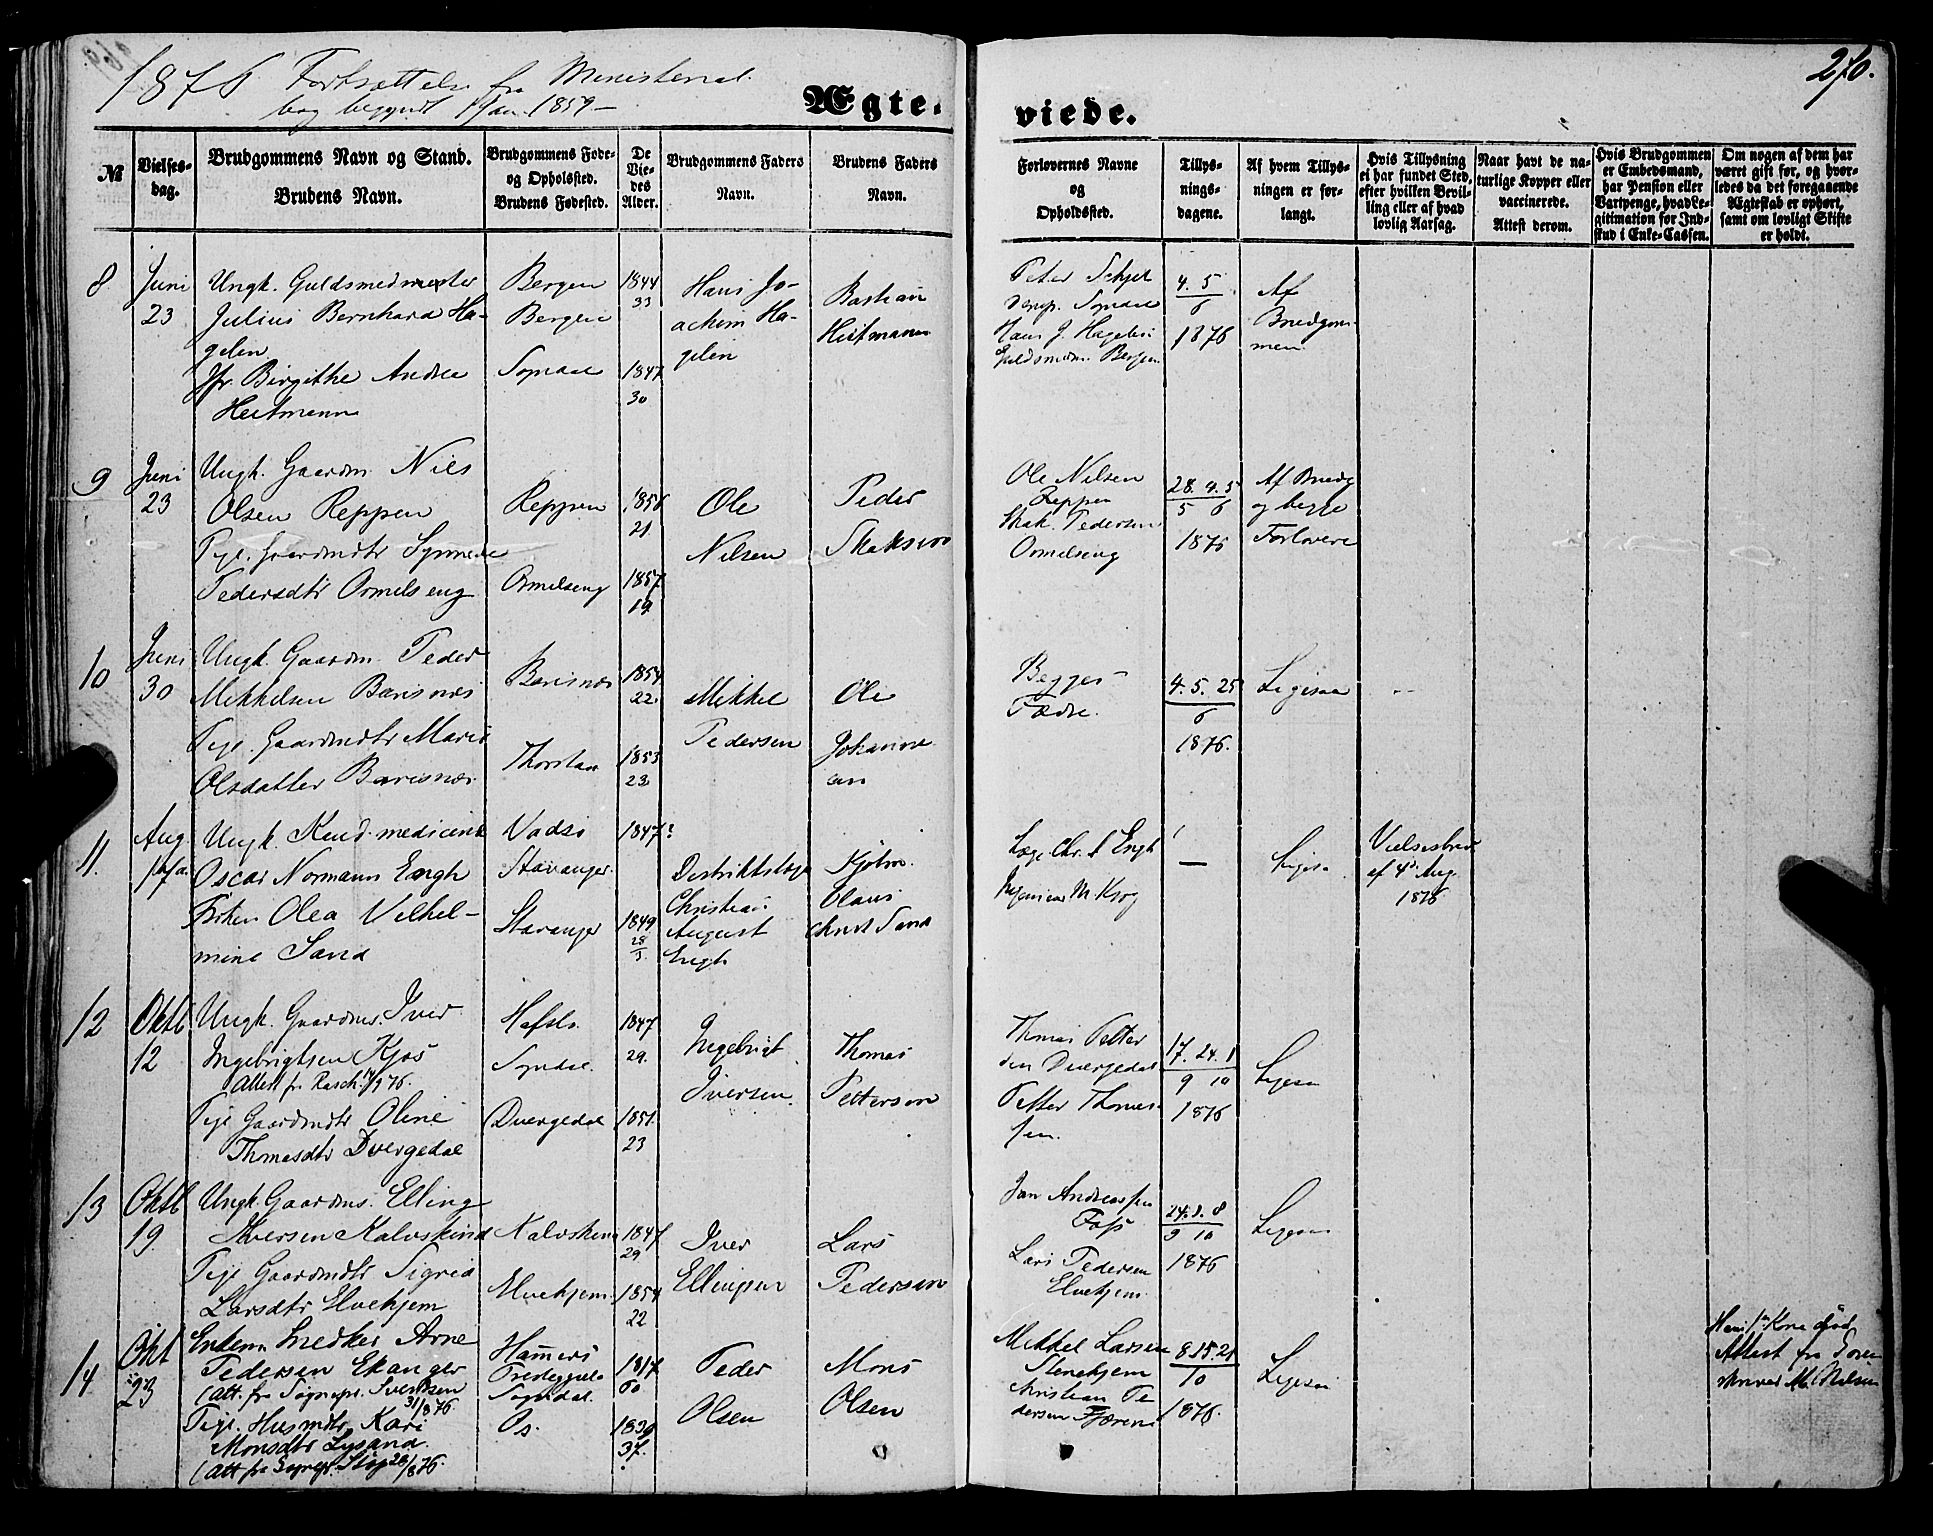 1876 Fortsættelse fra Ministerial
bog begyndt 1 Jan. 1859 —
Ægte-
viede.
276.
№
Vielses-
dag.
Brudgommens Navn og Stand.
Brudens Navn.
Brudgommens Føde-
og Opholdsted.
Brudens Fødested.
De
Vie-
des
Alder.
Brudgommens Faders
Navn.
Brudens Faders
Navn.
Forlovernes Navne
og
Opholdsted.
Tillys-
nings-
dagene.
Af hvem Tillys-
ningen er for-
langt.
Hvis Tillysning
ei har fundet Sted,
efter hvilken Bevil-
ling eller af hvad
lovlig Aarsag.
Naar havt de na-
turlige Kopper eller
vaccinerede.
Attest derom.
Hvis Brudgommen
er Embedsmand,
har Pension eller
Vartpenge, hvad Le-
gitimation for Ind-
skud i Enke-Cassen.
Om nogen af dem har
været gift før, og hvor-
ledes da det foregaaende
Ægteskab er ophørt,
samt om lovligt Skifte
er holdt.
8
Juni
23
Ungk. Guldsmedmester
Julius Bernhard Ha-
gelin
Jfr. Birgithe Andrea
Heitmann
Bergen
Bergen
Sogndal
1844
33
1847
30
Hans Jo-
achim Ha-
gelin
Bastian
Heitmann
Peter Schjel
derup. Sogndal
Hans J. Hagelin
Guldsmedm. Bergen
4. 5
6
1876
Af
Brudgom-
men.
9
Juni
23
Ungk. Gaardm. Niels
Olsen Reppen
Pige. Gaardmdtr Synneve
Pedersdtr Ormelseng
Reppen
Ormelseng
1856
21
1857
19
Ole
Nilsen
Peder
Ole Nilsen
Reppen
Pedersen
Ormelseng
28. 4. 5
5 6
1876
Af Brudg
og begge
Forlovere
10
Juni
30
Ungk. Gaardm. Peder
Mikkelsen Barisnes
Pige. Gaardmdtr Mari
Olsdatter Barisnes
Barisnes
Thorstad
1854
22
1853
23
Mikkel
Pedersen
Ole
Begges
Fædre.
4. 5. 25
6
1876.
Ligesaa
11.
Aug.
Ungk. Kand. medicinæ
Oscar Normann Engh
Frøken Olea Vilhel-
mine Sand
Vadsø
Stavanger
Stavanger
1847?
1849
28
Distriktslæge
Christian
August
Engh
Kjøbm.
Claus
Sand
Læge Chr. A Engh
Ingeniør M Krog
—
Ligesaa
Vielsesbrev
af 4de Aug.
1876
12
Oktb
12
Ungk. Gaardm. Iver
Ingebrigtsen Kjos
Attest fr. Rasch. 14/9 76.
Pige Gaardmdtr Oline
Thomasdtr Dvergedal
Hafslo
Sogndal.
Dvergedal
1847
29.
23
Ingebrigt
Iversen.
Thomas
Pettersen
Thomas Petter
sen Dvergedal
Petter Thomas-
sen.
17. 24. 1
9 10
1876
Ligesaa
13
Oktb
19.
Ungk. Gaardms. Elling
Iversen Kalvskind
Pige Gaardmdtr Sigrid
Larsdtr Elvehjem
Kalvskind
Elvehjem.
1847
29
1854
22
Iver
Ellingsen
Lars
Pedersen
Jan Andreassen
Foss
Lars Pedersen
Elvehjem.
24. 1. 8
9 10
1876
Ligesaa
14
Okt
23
Enkem. Snedker Arne
Pedersen Ekanger
(Att. fra Sognepr. 31/8 76
Pige. Husmdtr Kari
Monsdtr Lysand.
(Att fra Sognepr. 28/8 76.
Hammers
Sogndal.
Os.
60
1839
37.
Peder
Olsen
Mons
Olsen
Mikkel Larsen
Stenehjem
Christian Pe
dersen Fjæren
8. 15. 21
10
1876.
Ligesaa
Attest fra Soren
skriver M. Nilsen